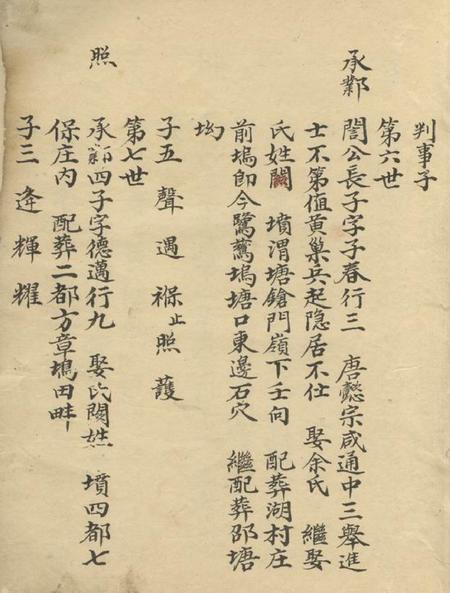 判事子
第六世
承鄴 誾公長子字子春行三 唐懿宗咸通中三舉進
士不第值黄巢兵起隐居不仕 娶余氏 繼娶
氏姓闕 墳渭塘鎗門嶺下壬向 配葬湖村庄
前塢即今鷺鷥塢塘口東邊石穴 繼配葬邵塘
坳
子五 聲 遇 止 照 護
第七世
照 承鄴四子字德邁行九 娶氏闕姓 墳四都七
保庄内 配葬二都方章塢田畔
子三 逢 輝 耀